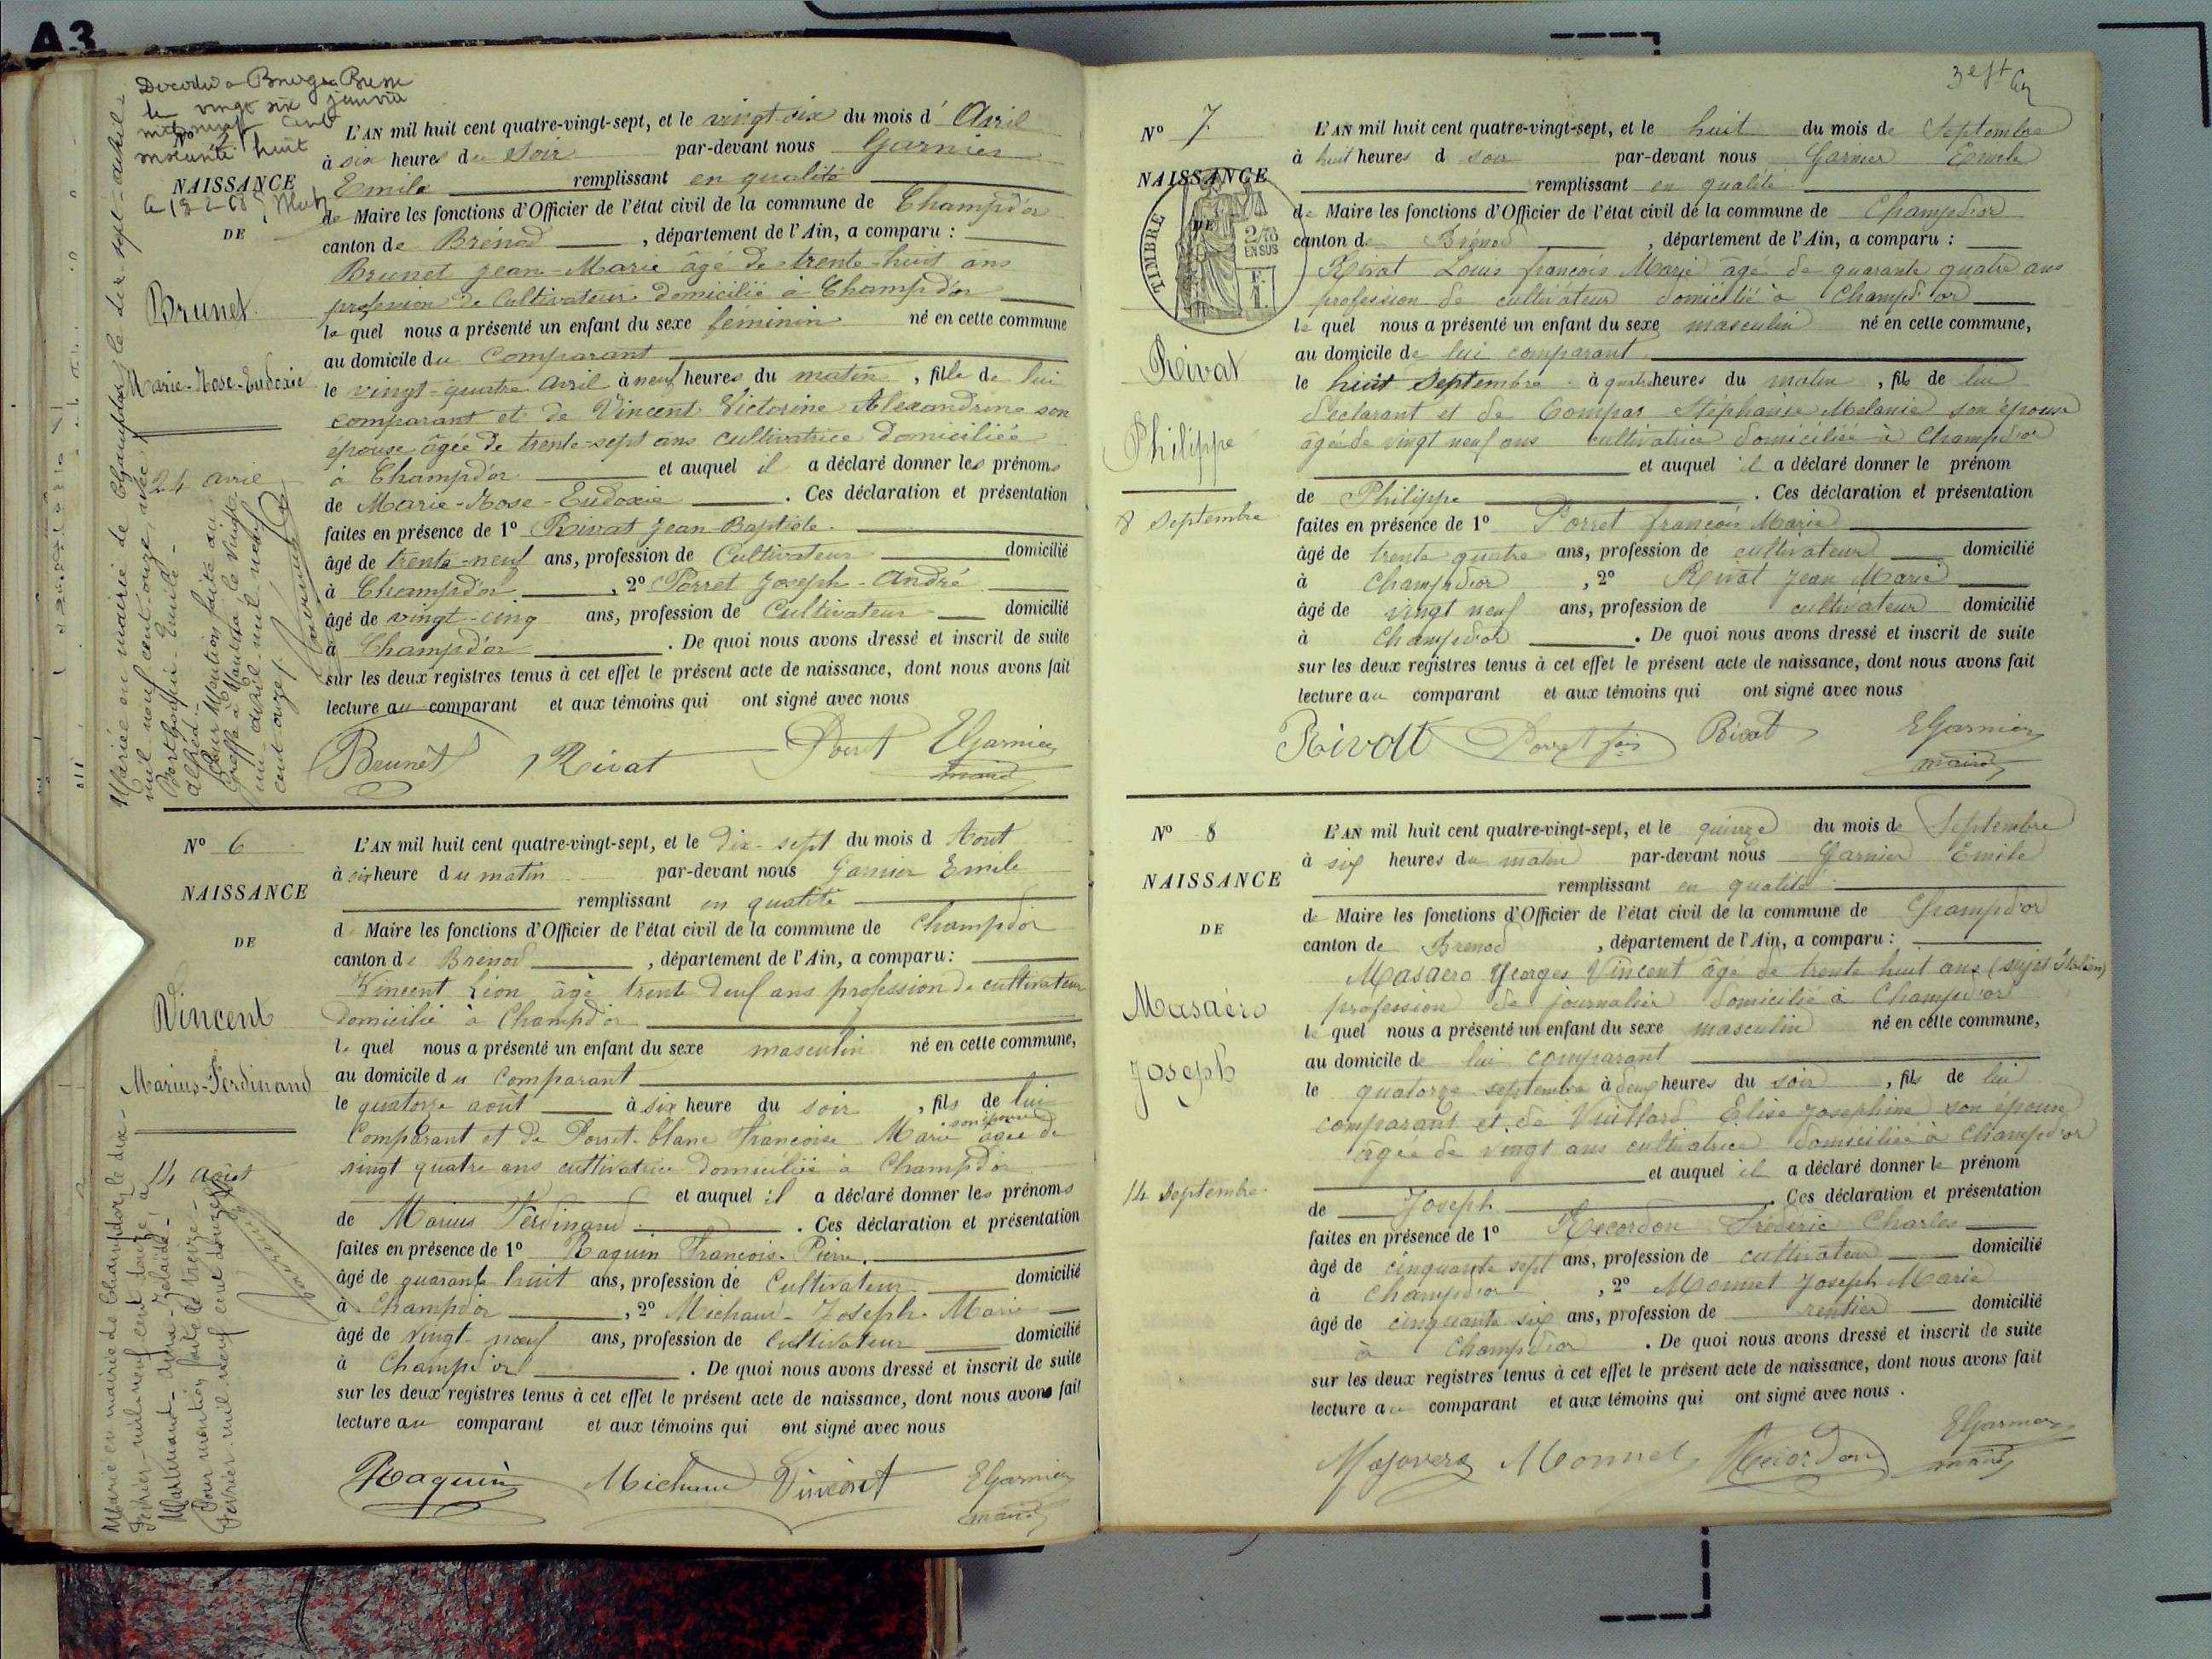 A3
Décédée à Bourg en Bresse
le vingt six janvier
mil neuf cent
soixante huit
NAISSANCE
DE
Brunet
Marie-Rose-Eudoxie
24 avril
Mariée en mairie de Champdor le dix-sept-avril-
mil neuf cent onze, avec
Alfred-
Pour Mention faite au
Greffe à Nantua le vingt
un avril mil neuf
cent onze.
L'AN mil huit cent quatre-vingt-sept, et le vingt-six du mois d'Avril
à six heures du soir par-devant nous Garnier
Emile remplissant en qualité
de Maire les fonctions d'Officier de l'état civil de la commune de Champd'or
canton de Brénod, département de l'Ain, a comparu :
Brunet Jean-Marie âgé de trente-huit ans
profession de Cultivateur domicilié à Champd'or
lequel nous a présenté un enfant du sexe féminin né en cette commune
au domicile du Comparant
le vingt-quatre Avril à neuf heures du matin, fille de lui
comparant et de Vincent Victorine Alexandrine son
épouse âgée de trente-sept ans cultivatrice domiciliée
à Champd'or et auquel il a déclaré donner les prénoms
de Marie-Rose-Eudoxie. Ces déclaration et présentation
faites en présence de 1º Rivat Jean-Baptiste.
âgé de trente-neuf ans, profession de Cultivateur domicilié
à Champd'or, 2º Porret Joseph-André
âgé de vingt-cinq ans, profession de Cultivateur domicilié
à Champd'or. De quoi nous avons dressé et inscrit de suite
sur les deux registres tenus à cet effet le présent acte de naissance, dont nous avons fait
lecture au comparant et aux témoins qui ont signé avec nous
Brunet Rivat Porret EGarnier
maire
Nº 6
NAISSANCE
DE
Vincent
Marius-Ferdinand
14 août
Marié en mairie de Champdor, le dix-
février-mil-neuf-cent douze, à
Pour mention faite le treize-
février mil neuf cent douze
L'AN mil huit cent quatre-vingt-sept, et le dix-sept du mois d Août
à six heure du matin par-devant nous Garnier Emile
remplissant en qualité
d Maire les fonctions d'Officier de l'état civil de la commune de Champd'or
canton de Brenod, département de l'Ain, a comparu :
Vincent Léon âgé trente deux ans profession de cultivateur
domicilié à Champd'or
lequel nous a présenté un enfant du sexe masculin né en cette commune,
au domicile du Comparant
le quatorze août à six heure du soir, fils de lui
Comparant et de Porret-blanc Françoise Marie son épouse agée de
vingt quatre ans cultivatrice domiciliée à Champd'or
et auquel il a déclaré donner les prénoms
de Marius Ferdinand. Ces déclaration et présentation
faites en présence de 1º Raquin François-Pierre.
âgé de quarante huit ans, profession de Cultivateur domicilié
à Champd'or, 2º Michaud-Joseph-Marie
âgé de vingt-neuf ans, profession de Cultivateur domicilié
à Champd'or. De quoi nous avons dressé et inscrit de suite
sur les deux registres tenus à cet effet le présent acte de naissance, dont nous avons fait
lecture au comparant et aux témoins qui ont signé avec nous
Raquin Michaud Vincent EGarnier
maire
Nº 7
NAISSANCE
DE
TIMBRE
2/10
EN SUS
Rivat
Philippe
8 septembre
L'AN mil huit cent quatre-vingt-sept, et le huit du mois de Septembre
à huit heures d soir par-devant nous Garnier Emile
remplissant en qualité
de Maire les fonctions d'Officier de l'état civil de la commune de Champd'or
canton de Brénod, département de l'Ain, a comparu :
Rivat Louis françois Marie âgé de quarante quatre ans
profession de cultivateur domicilié à Champd'or
lequel nous a présenté un enfant du sexe masculin né en cette commune,
au domicile de lui comparant
le huit Septembre à quatre heures du matin, fils de lui
déclarant et de Compar Stéphanie Mélanie son épouse
âgée de vingt neuf ans cultivatrice domiciliée à Champd'or
et auquel il a déclaré donner le prénom
de Philippe. Ces déclaration et présentation
faites en présence de 1º Porret françois Marie
âgé de trente quatre ans, profession de cultivateur domicilié
à Champd'or, 2º Rivat Jean Marie
âgé de vingt neuf ans, profession de cultivateur domicilié
à Champd'or. De quoi nous avons dressé et inscrit de suite
sur les deux registres tenus à cet effet le présent acte de naissance, dont nous avons fait
lecture au comparant et aux témoins qui ont signé avec nous
Rivat Porret fois Rivat EGarnier
maire
Nº 8
NAISSANCE
DE
Masaéro
Joseph
14 septembre
L'AN mil huit cent quatre-vingt-sept, et le quinze du mois de Septembre
à six heures du matin par-devant nous Garnier Emile
remplissant en qualité
de Maire les fonctions d'Officier de l'état civil de la commune de Champd'or
canton de Brenod, département de l'Ain, a comparu :
Masaero Georges Vincent âgé de trente huit ans (sujet Italien)
profession de journalier domicilié à Champd'or
lequel nous a présenté un enfant du sexe masculin né en cette commune,
au domicile de lui comparant
le quatorze septembre à deux heures du soir, fils de lui
comparant et de Vuillard Elise Josephine son épouse
âgée de vingt ans cultivatrice domiciliée à Champd'or
et auquel il a déclaré donner le prénom
de Joseph. Ces déclaration et présentation
faites en présence de 1º Recordon Frédéric Charles
âgé de cinquante sept ans, profession de cultivateur domicilié
à Champd'or, 2º Monnet Joseph Marie
âgé de cinquante six ans, profession de rentier domicilié
à Champd'or. De quoi nous avons dressé et inscrit de suite
sur les deux registres tenus à cet effet le présent acte de naissance, dont nous avons fait
lecture au comparant et aux témoins qui ont signé avec nous.
Monnet Recordon EGarnier
maire